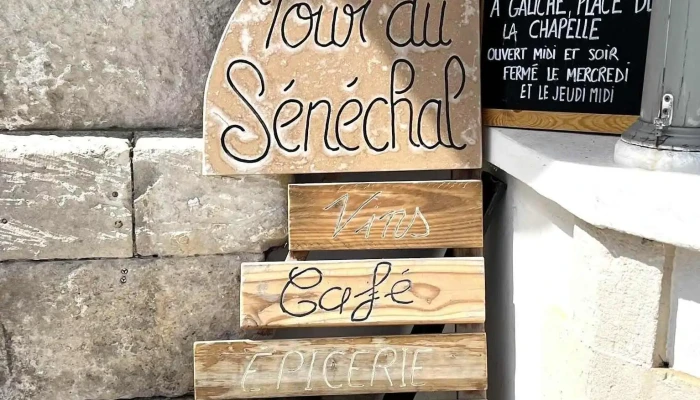 Tour du
Sénéchal
Vins
Café
EPICERIE
A GAUCHE, PLACE DE
LA CHAPELLE
OUVERT MIDI ET SOIR
FERMÉ LE MERCREDI
ET LE JEUDI MIDI